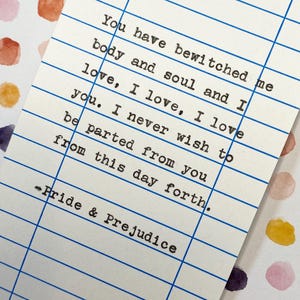 You have bewitched me
body and soul and I
love, I love, I love
you. I never wish to
be parted from you
from this day forth.
-Pride & Prejudice